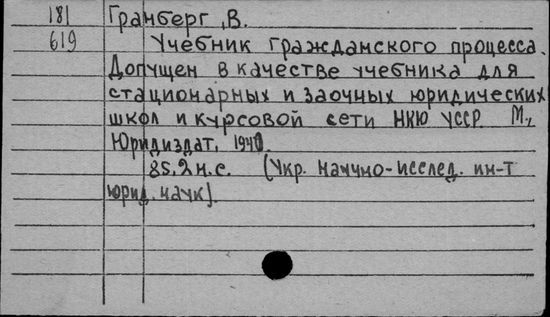 181 Гранберг, В.
619 Учебник гражданского процесса.
Допущен в качестве учебника для
стационарных и заочных юридических
школ и курсовой сети НКЮ УССР. М.,
Юриздат, 1940.
85, 2 н.с. (Укр. научно-исслед. ин-т
юрид. наук).